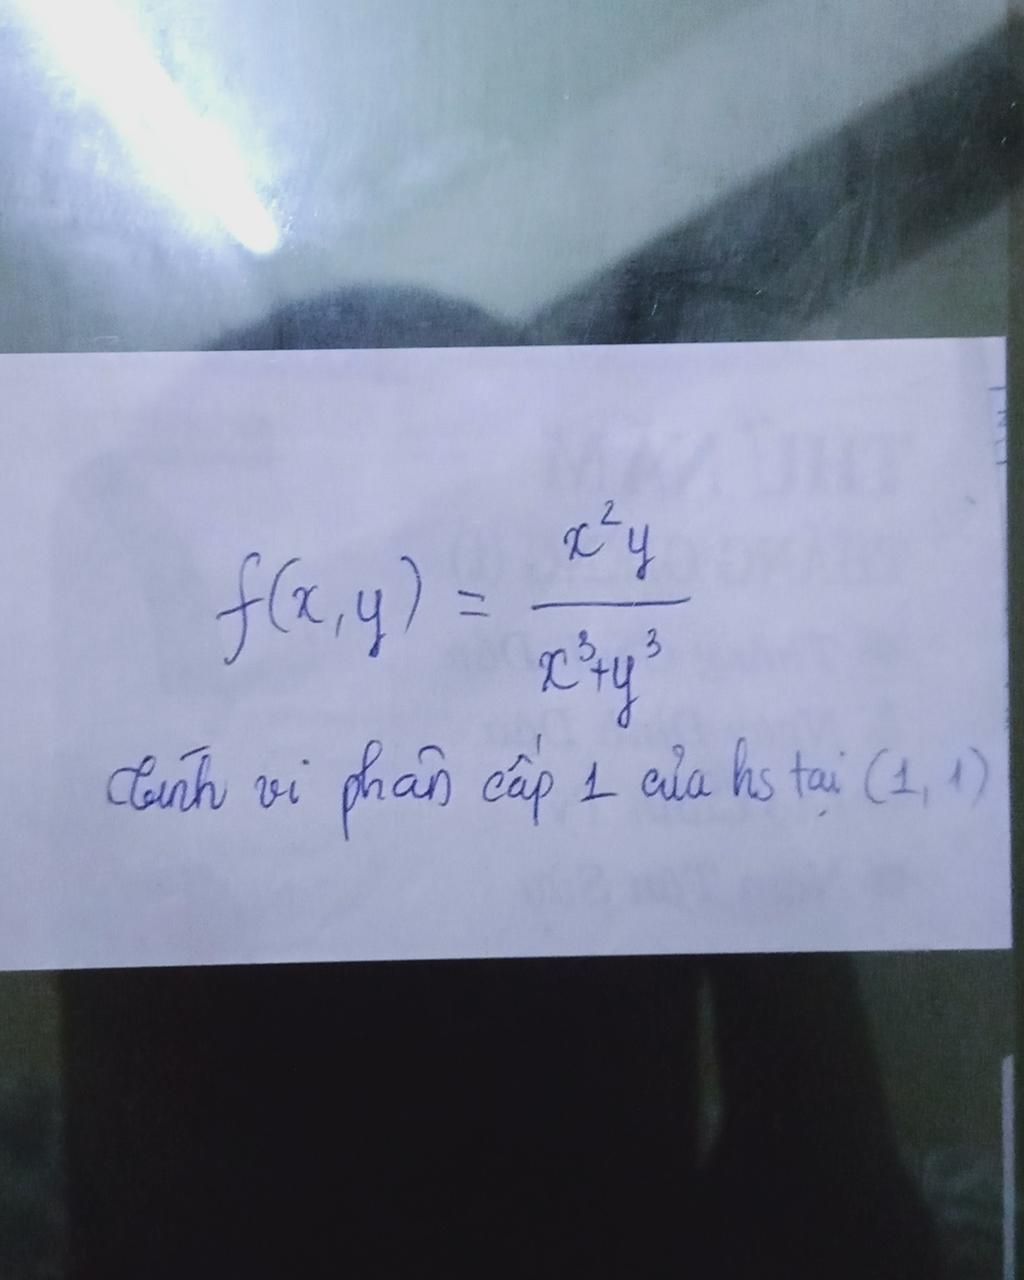 f(x,y) = x²y / x³+y³
tính vi phân cấp 1 của hs tại (1,1)